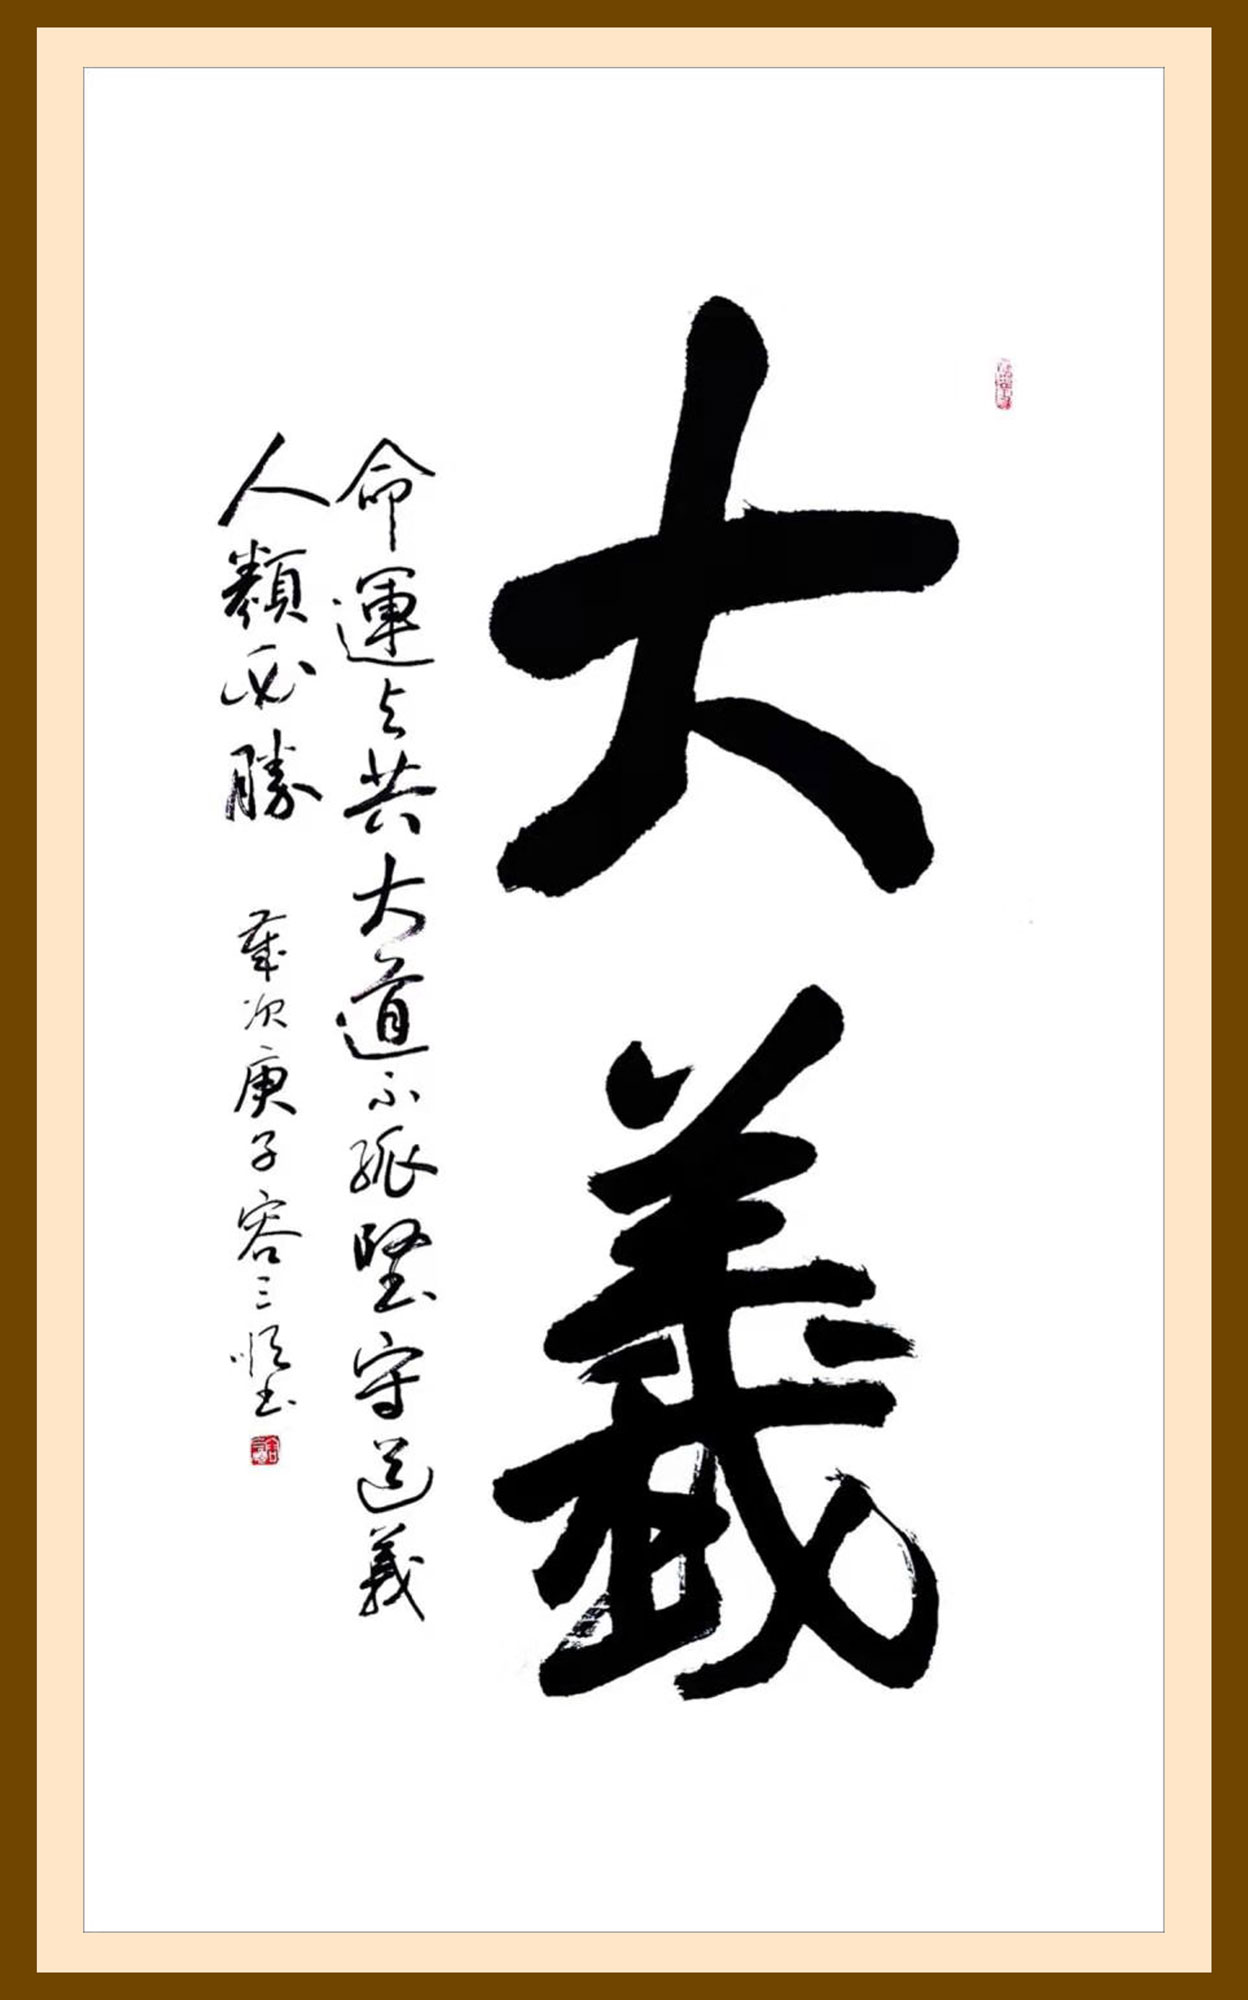 大義
命運与共大道不孤堅守道義
人類必勝 歲次庚子容三惟書